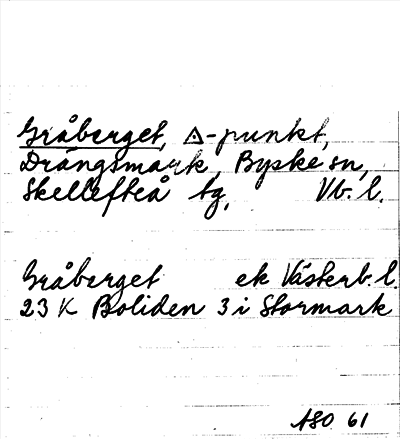 Gråberget, △-punkt,
Drängsmark, Byske sn,
Skellefteå tg, Vb. l.
Gråberget ek Västerb. l.
23 K Boliden 3 i Stormark
ASO 61